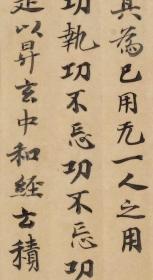 其為已用无一人之用
功執功不忘功不忘功
是以昇玄中和經古積